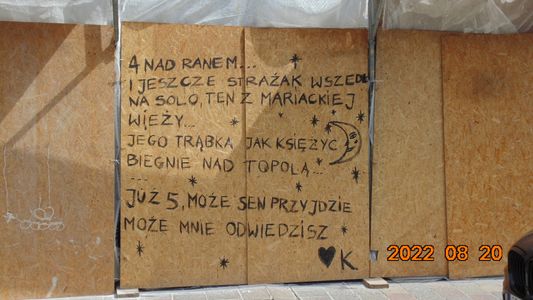 4 NAD RANEM...
I JESZCZE STRAŻAK WSZEDŁ
NA SOLO, TEN Z MARIACKIEJ
WIEŻY...
JEGO TRĄBKA JAK KSIĘŻYC
BIEGNIE NAD TOPOLĄ...
...
JUŻ 5, MOŻE SEN PRZYJDZIE
MOŻE MNIE ODWIEDZISZ
♥K
2022 08 20